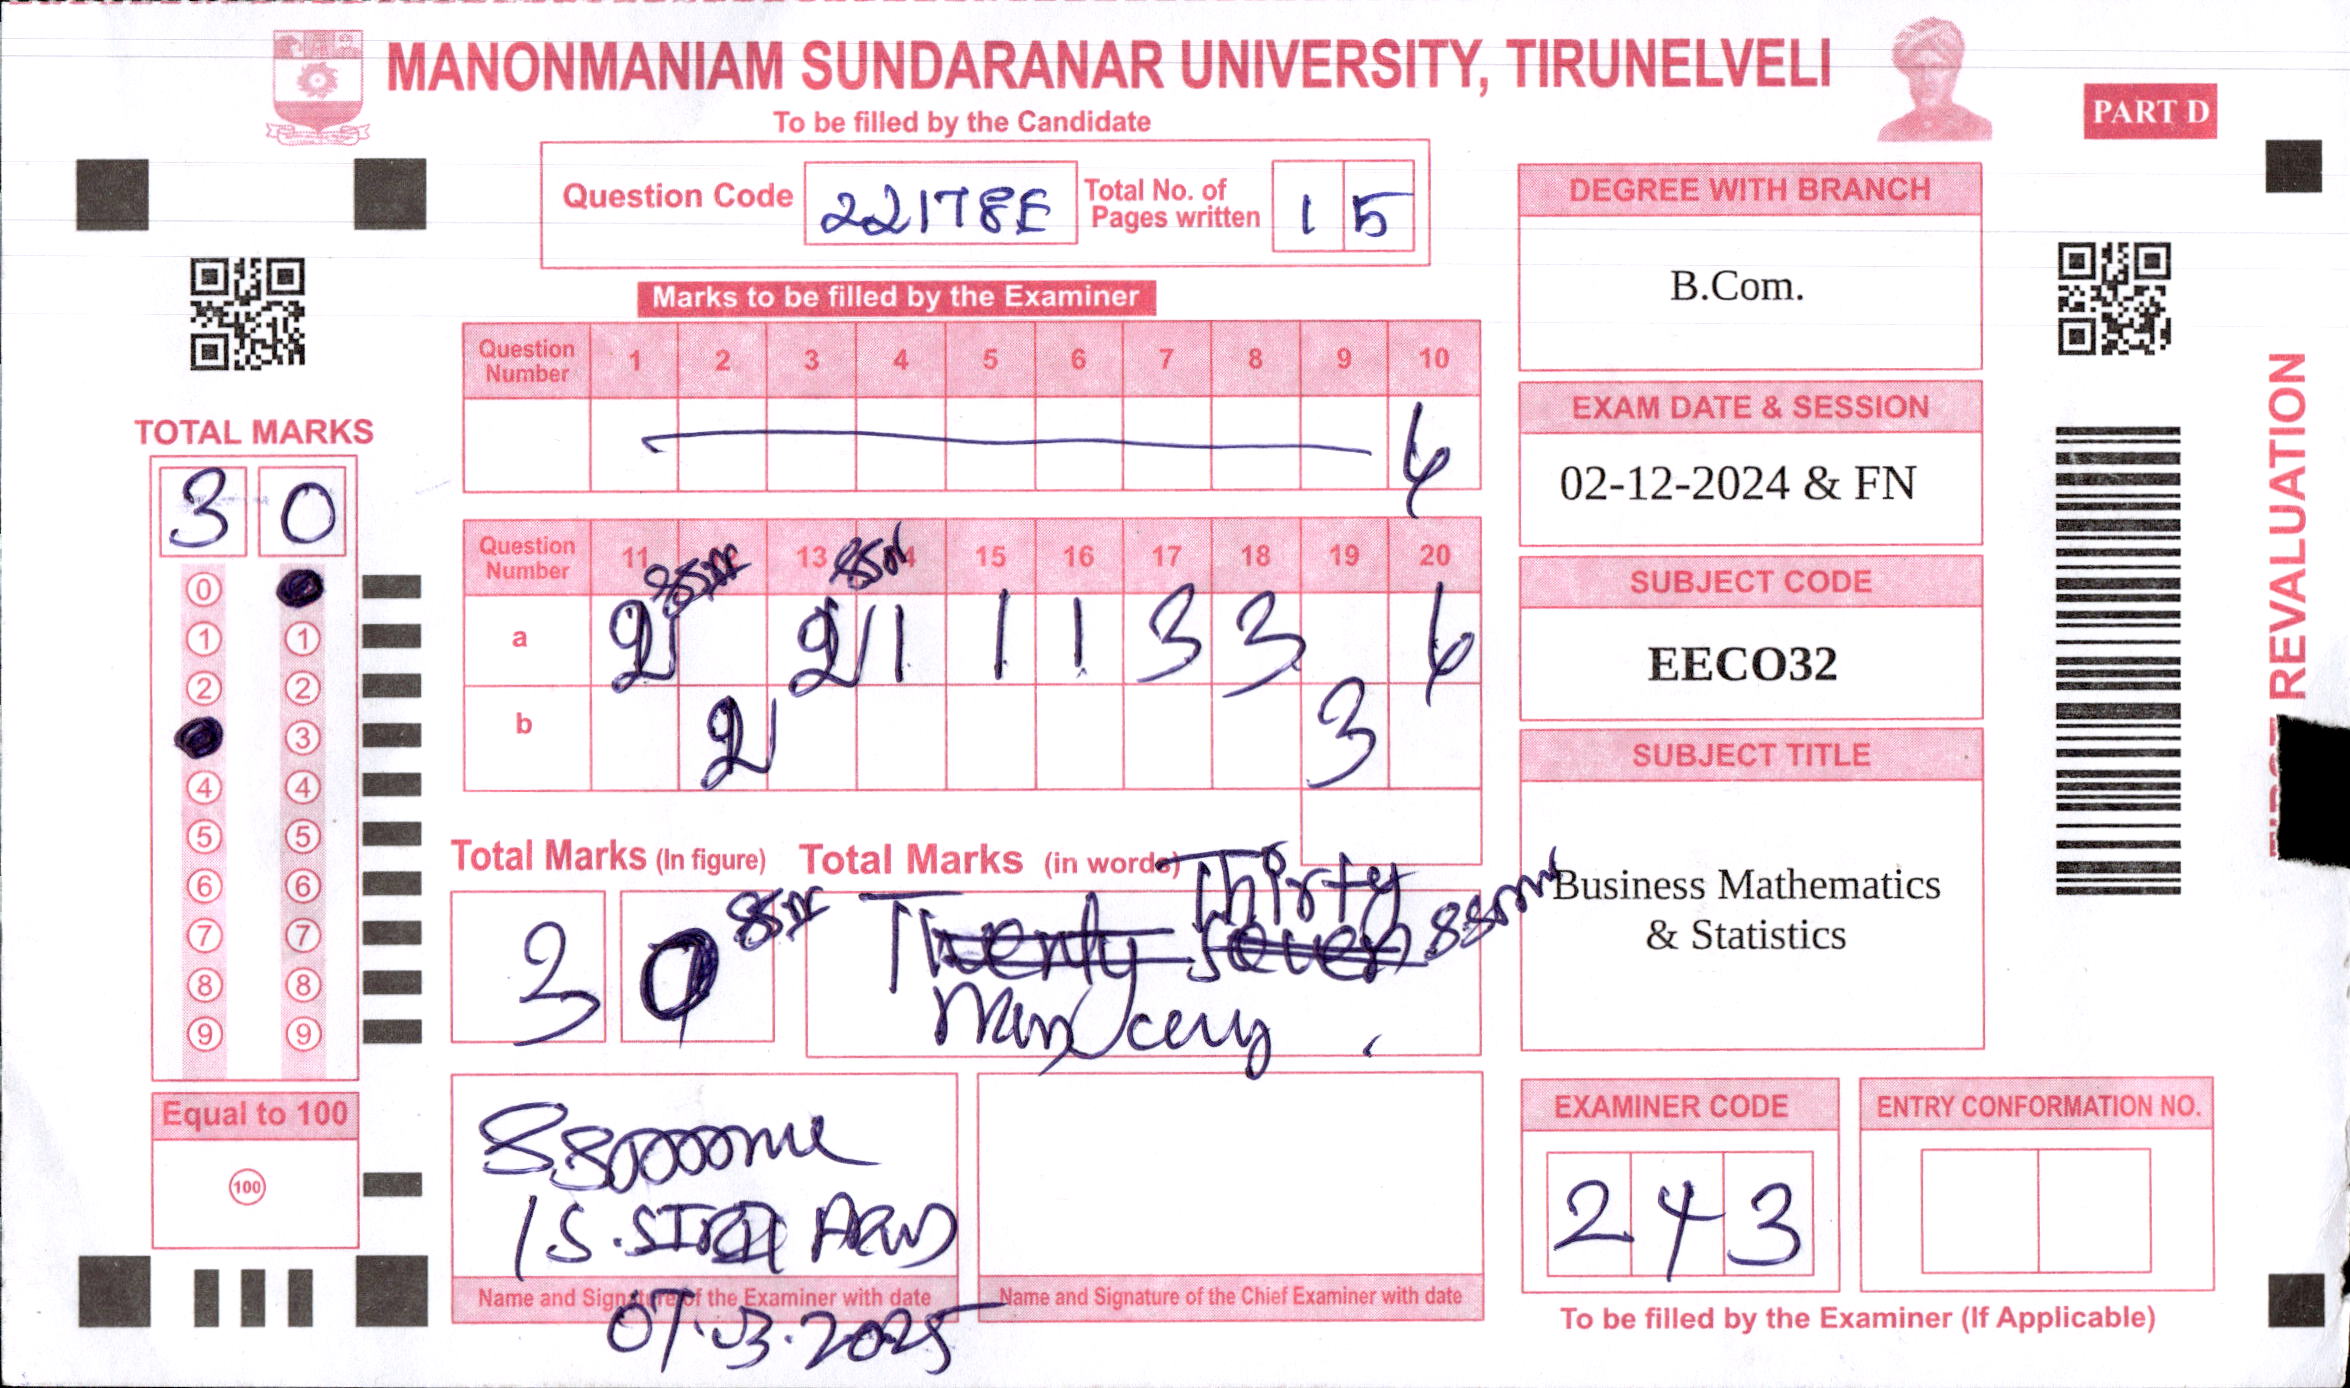 MANONMANIAM SUNDARANAR UNIVERSITY, TIRUNELVELI
PART D
To be filled by the Candidate
Question Code 22178E Total No. of Pages written 1 5
Marks to be filled by the Examiner
Question Number 1 2 3 4 5 6 7 8 9 10
6
Question Number 11 13 4 15 16 17 18 19 20
a 2 2 1 1 1 3 3 6
b 2 3
Total Marks (In figure) Total Marks (in words)
3 0
Thirty
Twenty seven
TOTAL MARKS
3 0
0
1 1
2 2
3
4 4
5 5
6 6
7 7
8 8
9 9
Equal to 100
100
07.03.2025
Name and Signature of the Examiner with date
Name and Signature of the Chief Examiner with date
DEGREE WITH BRANCH
B.Com.
EXAM DATE & SESSION
02-12-2024 & FN
SUBJECT CODE
EECO32
SUBJECT TITLE
Business Mathematics
& Statistics
EXAMINER CODE
2 4 3
ENTRY CONFORMATION NO.
To be filled by the Examiner (If Applicable)
REVALUATION